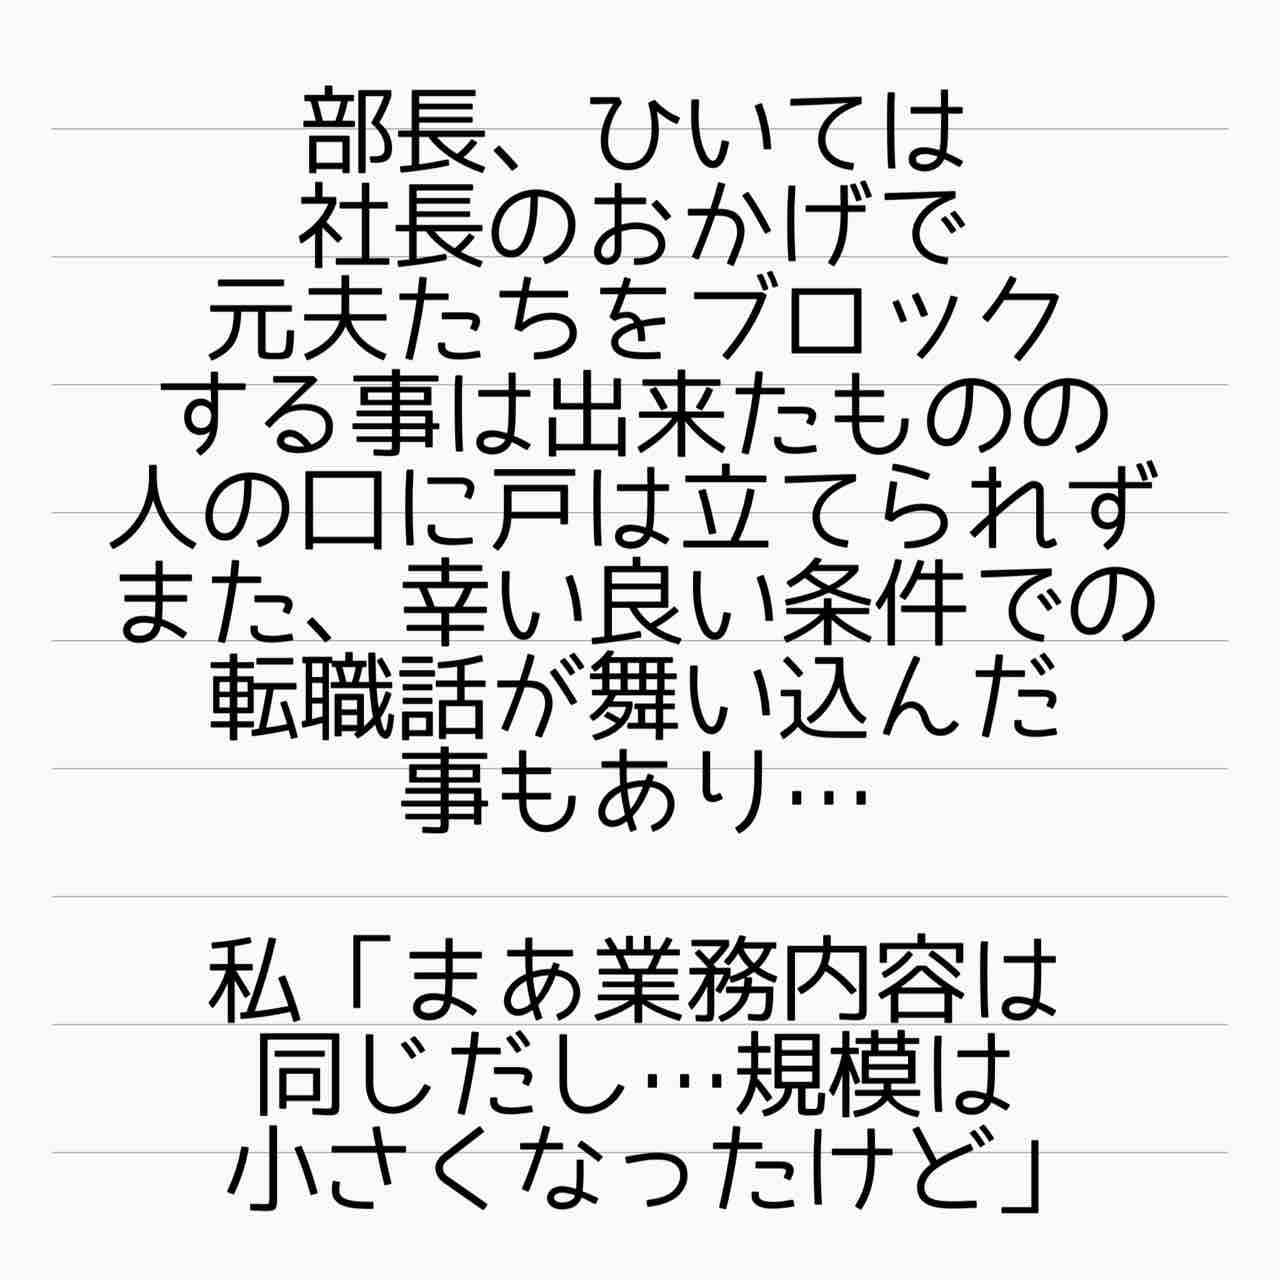 部長、ひいては
社長のおかげで
元夫たちをブロック
する事は出来たものの
人の口に戸は立てられず
また、幸い良い条件での
転職話が舞い込んだ
事もあり…
私「まあ業務内容は
同じだし…規模は
小さくなったけど」